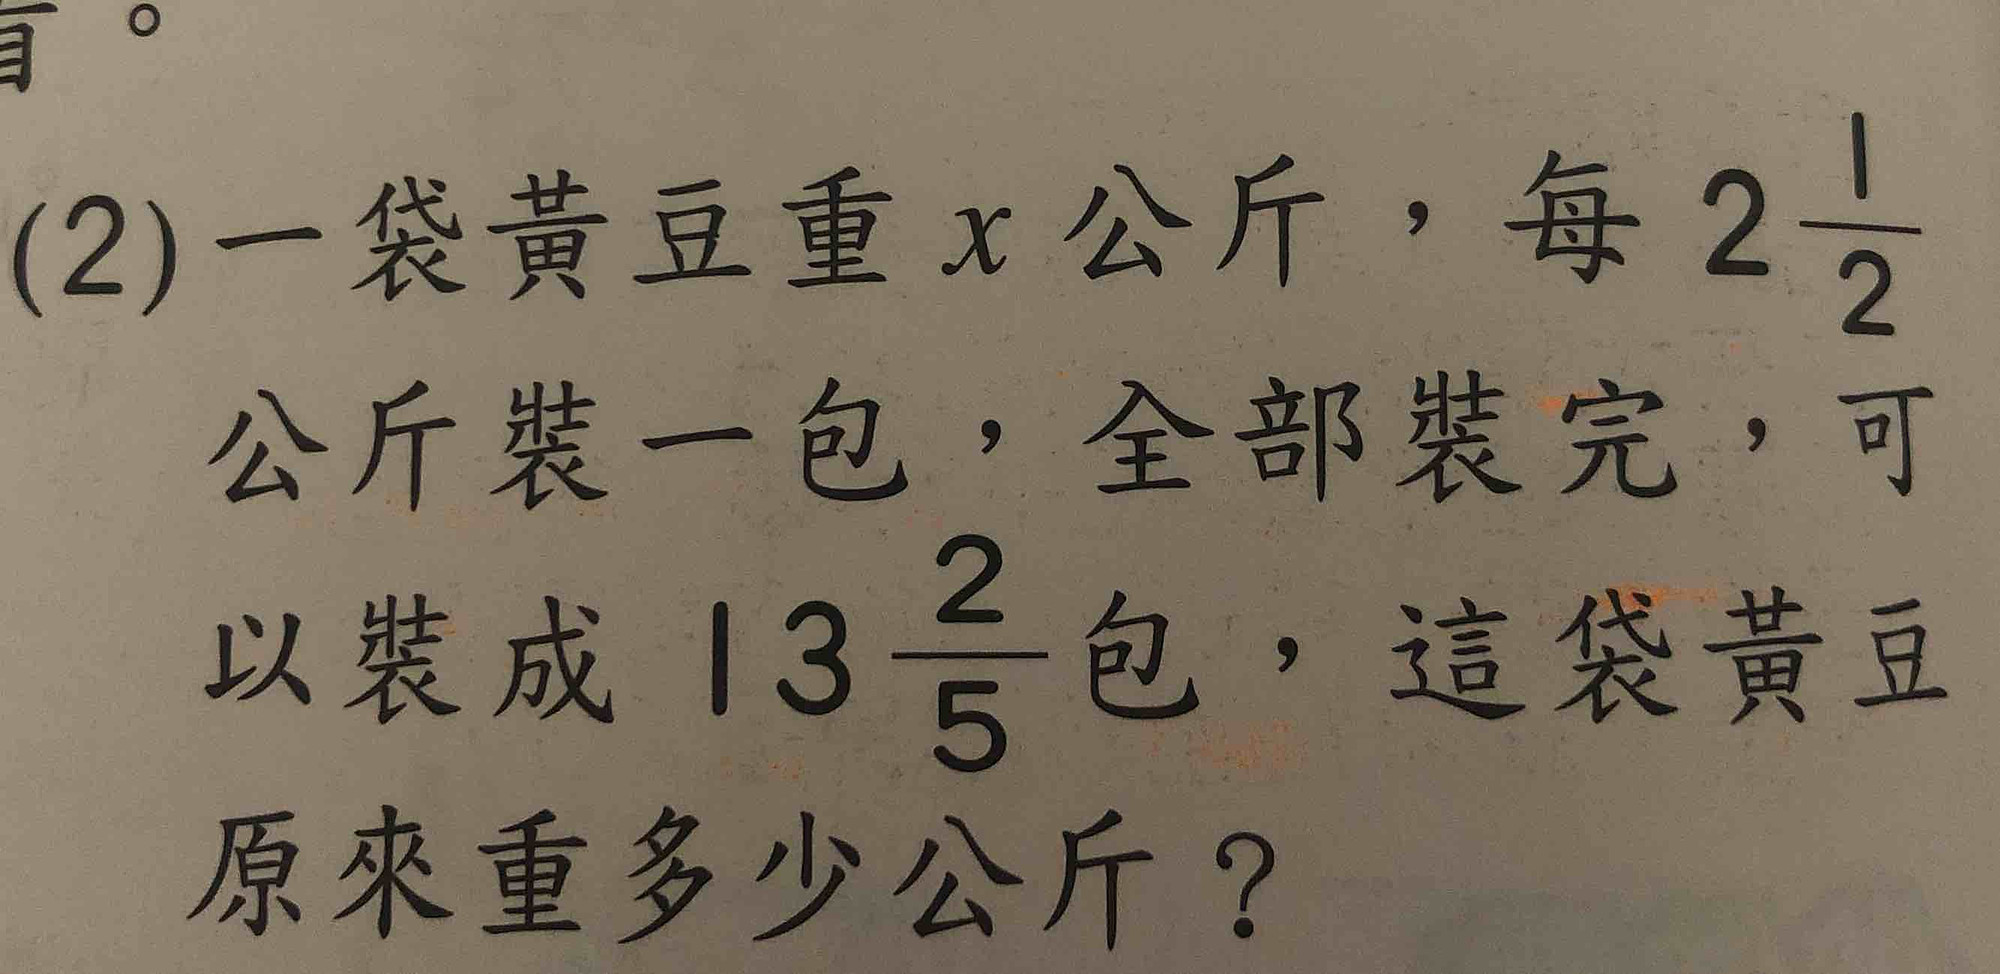 。
(2)一袋黃豆重 x 公斤，每 2 1/2
公斤裝一包，全部裝完，可
以裝成 13 2/5 包，這袋黃豆
原來重多少公斤？